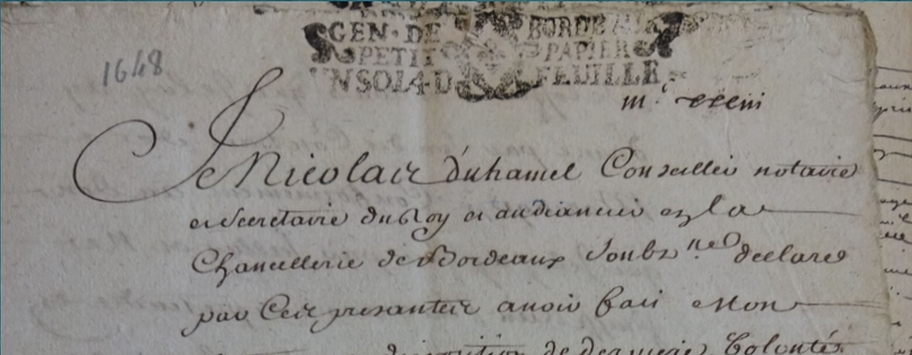 GEN·DE BORDEAUX
PETIT PAPIER
UN SOL 4·D FEUILLE
1648
Je Nicolas duhamel Conseiller notaire
et Secretaire du Roy et audiancier en la
Chancellerie de Bordeaux soubz ne declare
par Ces presantes avoir fait et mon
disposition de derniere Volonté